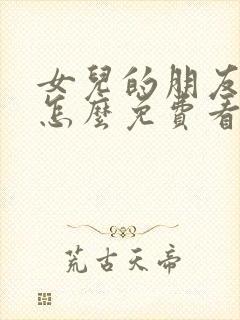 女兒的朋友
怎麼免費看
荒古天帝